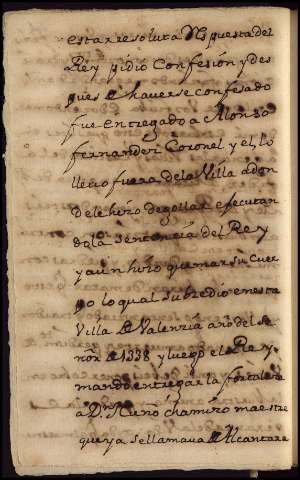 esta rresoluta Respuesta del
Rey pidio Confesion y des
pues de haverse confesado
fue entregado a Alonso
fernandez Coronel y el, lo
llevo fuera de la Villa a don
de le hizo degollar executan
do la sentencia del Rey
y aun hizo quemar su Cuer
po lo qual subcedio en esta
Villa de Valenzia año del Se
ñor de 1338 y luego el Rey
mando entregar la fortaleza
a Dn Nuño chamizo maestre
que ya se llamava de Alcantara